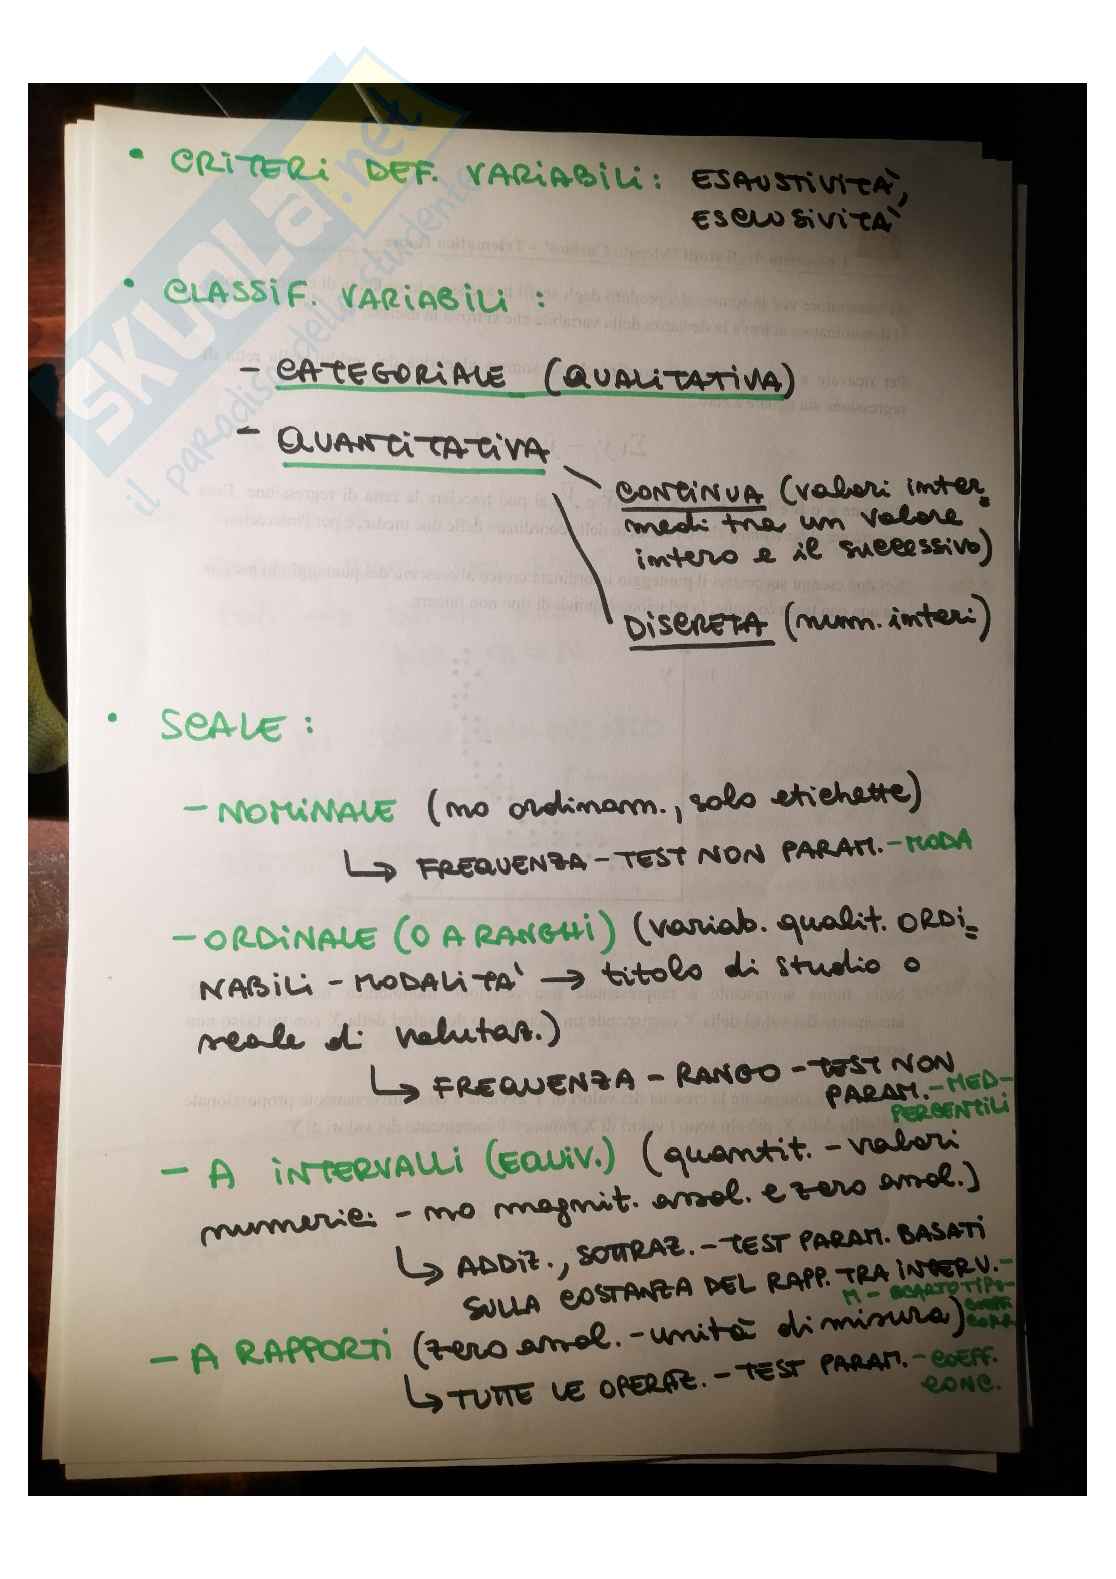 • CRITERI DEF. VARIABILI: ESAUSTIVITÀ,
ESCLUSIVITÀ
• CLASSIF. VARIABILI:
- CATEGORIALE (QUALITATIVA)
- QUANTITATIVA
CONTINUA (valori inter=
medi tra un valore
intero e il successivo)
DISCRETA (num. interi)
• SCALE:
- NOMINALE (no ordinam., solo etichette)
↳ FREQUENZA - TEST NON PARAM. - MODA
- ORDINALE (O A RANGHI) (variab. qualit. ORDI=
NABILI - MODALITÀ → titolo di studio o
scale di valutaz.)
↳ FREQUENZA - RANGO - TEST NON
PARAM. - MED -
PERCENTILI
- A INTERVALLI (EQUIV.) (quantit. - valori
numerici - no magnit. assol. e zero assol.)
↳ ADDIZ., SOTTRAZ. - TEST PARAM. BASATI
SULLA COSTANZA DEL RAPP. TRA INTERV. -
M - SCARTO TIPO -
COEFF.
CORR.
- A RAPPORTI (zero assol. - unità di misura)
↳ TUTTE LE OPERAZ. - TEST PARAM. - COEFF.
CONC.
SKUOLA.net
il paradiso dello studente